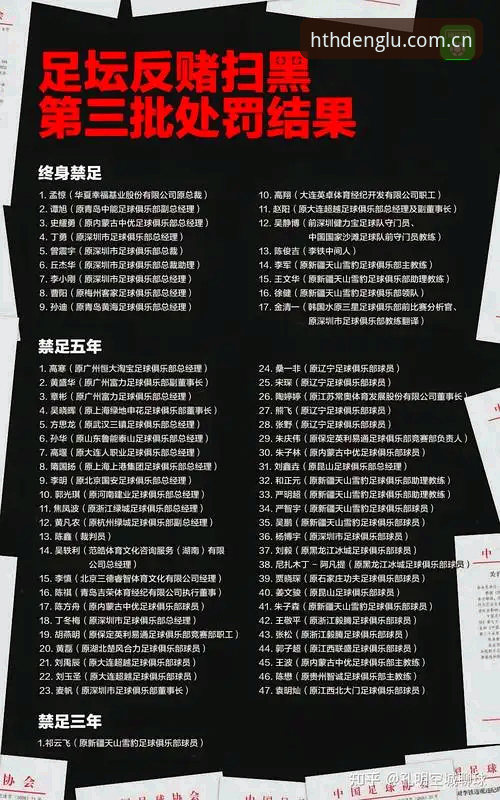 hthdenglu.com.cn
足坛反赌扫黑
第三批处罚结果
终身禁足
1. 孟惊（华夏幸福基业股份有限公司原总裁）
2. 谭旭（原青岛中能足球俱乐部副总经理）
3. 史耀勇（原内蒙古中优足球俱乐部总经理）
4. 丁勇（原深圳市足球俱乐部总经理）
5. 曾震宇（原深圳市足球俱乐部总裁）
6. 丘杰华（原深圳市足球俱乐部总裁助理）
7. 李小刚（原深圳市足球俱乐部总经理）
8. 曹阳（原梅州客家足球俱乐部总经理）
9. 孙迪（原青岛黄海足球俱乐部总经理）
10. 高翔（大连英卓体育经纪开发有限公司职工）
11. 赵阳（原大连超越足球俱乐部总经理及副董事长）
12. 吴静博（前深圳健力宝足球队守门员、
中国国家沙滩足球队前守门员教练）
13. 陈俊吉（李铁中间人）
14. 李军（原新疆天山雪豹足球俱乐部主教练）
15. 王文华（原新疆天山雪豹足球俱乐部助理教练）
16. 徐健（原新疆天山雪豹足球俱乐部领队）
17. 金清一（韩国水原三星足球俱乐部前比赛分析官、
原深圳市足球俱乐部教练翻译）
禁足五年
1. 高寒（原广州恒大淘宝足球俱乐部总经理）
2. 黄盛华（原广州富力足球俱乐部副董事长）
3. 章彬（原广州富力足球俱乐部总经理）
4. 吴晓晖（原上海绿地申花足球俱乐部董事长）
5. 方思龙（原武汉三镇足球俱乐部总经理）
6. 孙华（原山东鲁能泰山足球俱乐部总经理）
7. 高堰（原大连人职业足球俱乐部总经理）
8. 隋国扬（原上海上港集团足球俱乐部总经理）
9. 李明（原北京国安足球俱乐部总经理）
10. 郭光琪（原河南建业足球俱乐部总经理）
11. 焦凤波（原浙江绿城足球俱乐部总经理）
12. 黄凡农（原杭州绿城足球俱乐部副总经理）
13. 陈鑫（裁判员）
14. 吴轶利（范皓体育文化咨询服务（湖南）有限
公司总经理）
15. 李慎（北京三德睿智体育文化有限公司经理）
16. 陈祺（青岛吉荣体育经纪有限公司执行董事）
17. 陈方舟（原内蒙古中优足球俱乐部球员）
18. 丁冬梅（原深圳市足球俱乐部总经理）
19. 胡燕明（原保定英利易通足球俱乐部竞赛部职工）
20. 黄磊（原湖北楚风合力足球俱乐部球员）
21. 刘禹辰（原大连超越足球俱乐部球员）
22. 刘玉圣（原大连超越足球俱乐部球员）
23. 麦帆（原深圳市足球俱乐部董事长）
24. 桑一非（原辽宁足球俱乐部球员）
25. 宋琛（原辽宁足球俱乐部球员）
26. 陶婷婷（原江苏常奥体育发展股份有限公司董事长）
27. 熊飞（原辽宁足球俱乐部球员）
28. 张野（原辽宁足球俱乐部球员）
29. 朱庆伟（原保定英利易通足球俱乐部竞赛部负责人）
30. 朱子林（原内蒙古中优足球俱乐部球员）
31. 刘鑫垚（原昆山足球俱乐部总经理）
32. 和正元（原新疆天山雪豹足球俱乐部助理教练）
33. 严明超（原新疆天山雪豹足球俱乐部助理教练）
34. 严智宇（原新疆天山雪豹足球俱乐部球员）
35. 吴鹏（原新疆天山雪豹足球俱乐部球员）
36. 杨博宇（原深圳市足球俱乐部球员）
37. 刘毅（原黑龙江冰城足球俱乐部球员）
38. 尼扎木丁－阿凡提（原黑龙江冰城足球俱乐部球员）
39. 贾晓琛（原石家庄功夫足球俱乐部球员）
40. 姜文骏（原昆山足球俱乐部球员）
41. 朱子森（原新疆天山雪豹足球俱乐部球员）
42. 王敬平（原浙江毅腾足球俱乐部球员）
43. 张松（原浙江毅腾足球俱乐部球员）
44. 郭子超（原江西联盛足球俱乐部球员）
45. 王波（原内蒙古中优足球俱乐部主教练）
46. 陈懋（原贵州恒智诚足球俱乐部主教练）
47. 袁明灿（原江西北大门足球俱乐部球员）
禁足三年
1.祁云飞（原新疆天山雪豹足球俱乐部球员）
知乎 @孔明空城聊球
中国足球协会